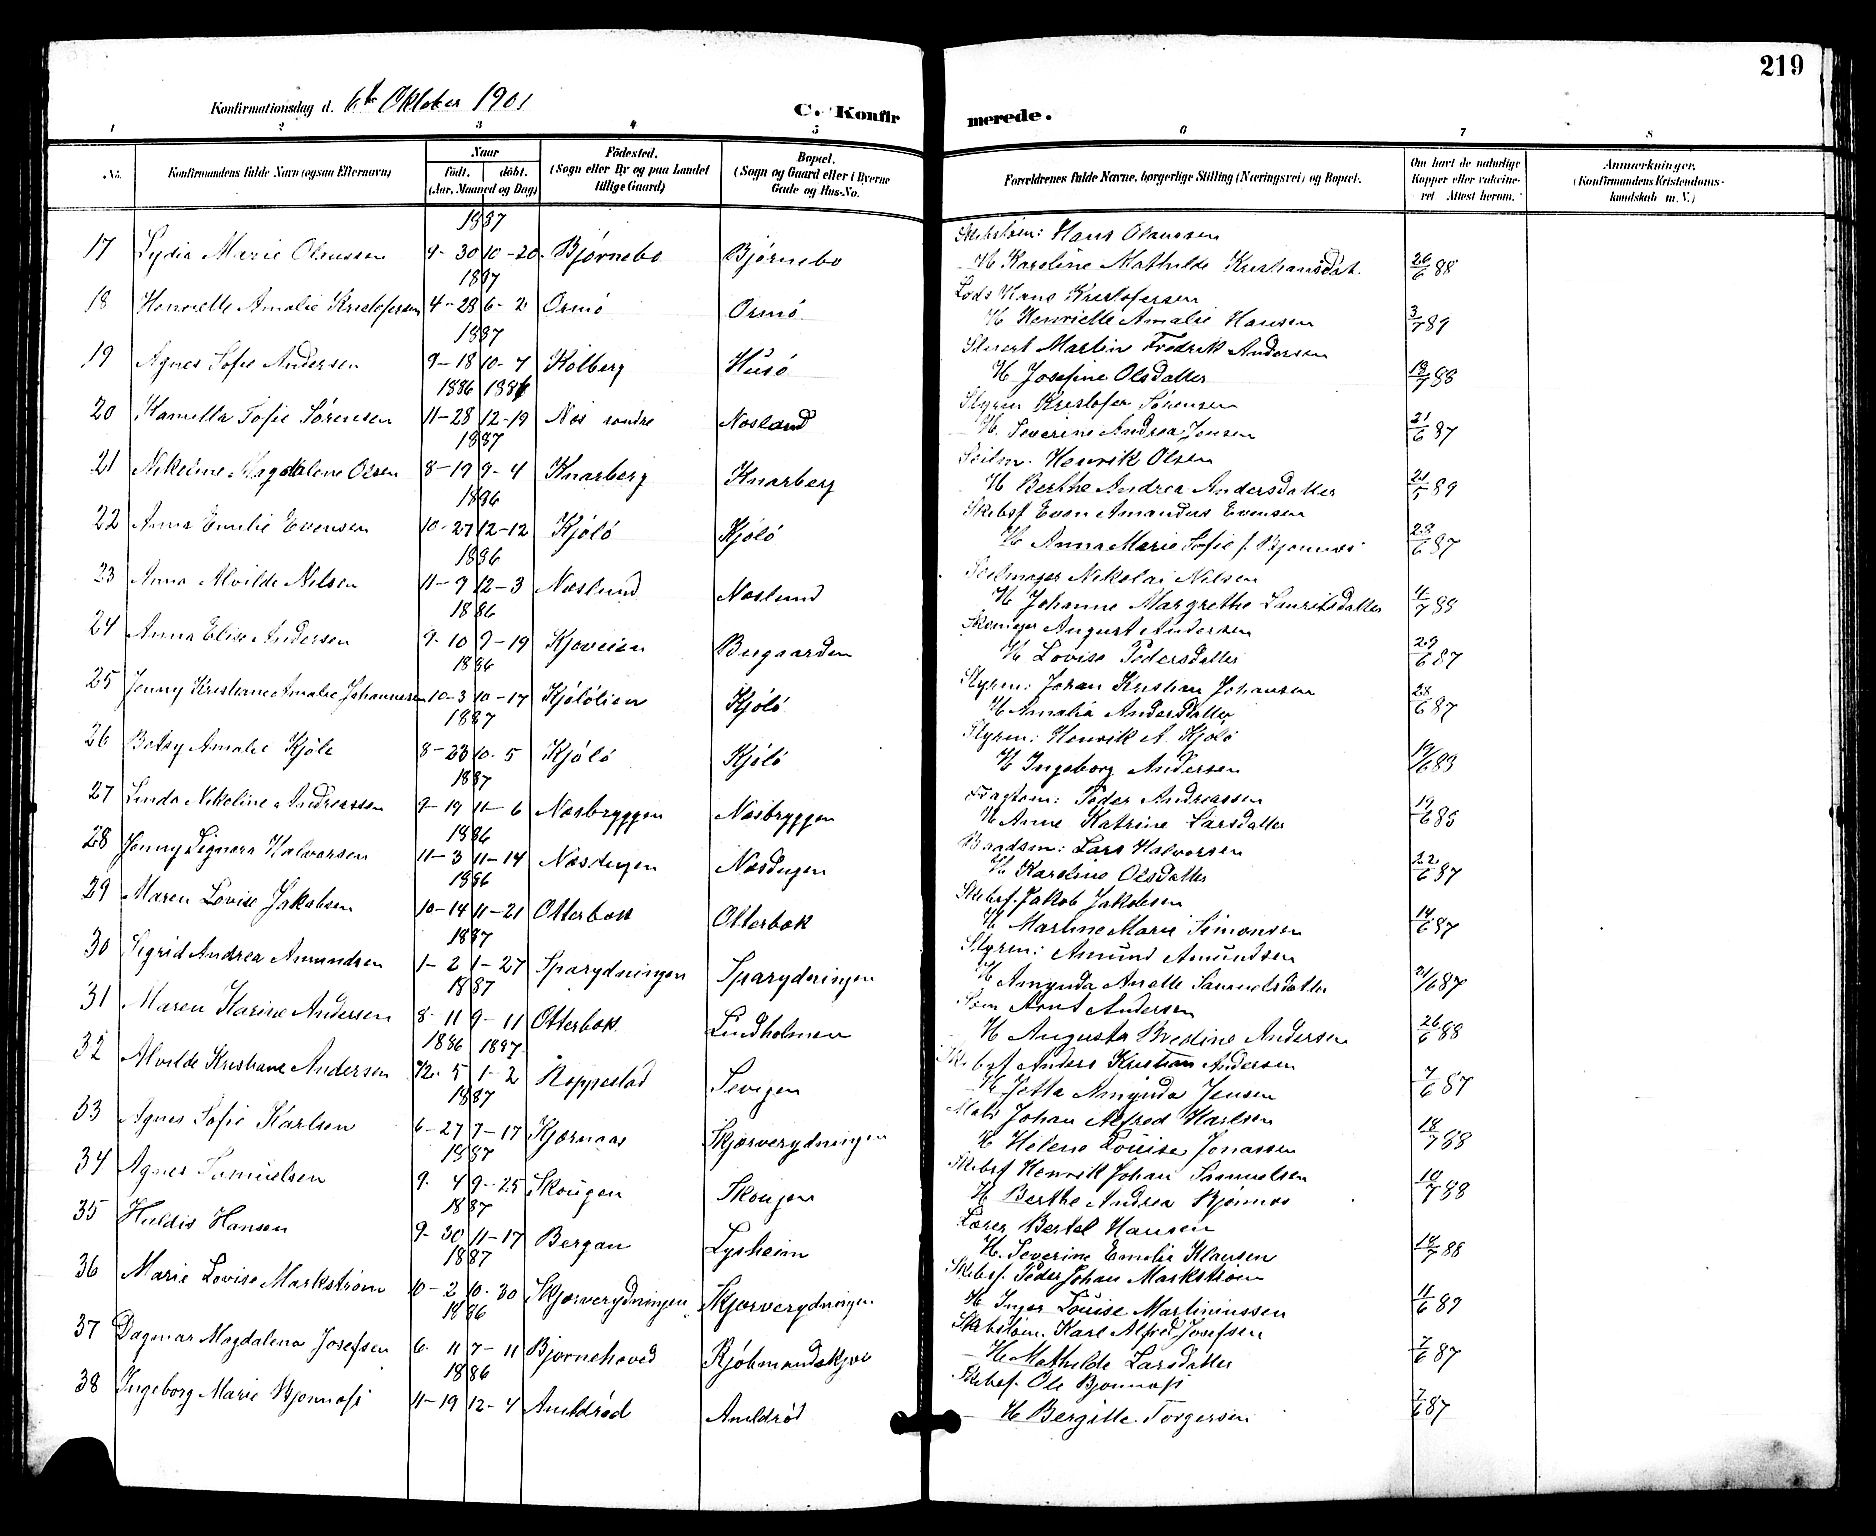 219
Konfirmationsdag d. 6te Oktober 1901
C. Konfirmerede.
1 2 3 4 5 6 7 8
No. Konfirmandens fulde Navn (ogsaa Efternavn) Naar født. døbt. (Aar, Maaned og Dag) Fødested. (Sogn eller By og paa Landet tillige Gaard) Bopæl. (Sogn og Gaard eller i Byerne Gade og Hus-No. Forældrenes fulde Navne, borgerlige Stilling (Næringsvei) og Bopæl. Om havt de naturlige Kopper eller vaccineret. Attest herom. Anmærkninger. (Konfirmandens Kristendomskundskab m. V.)
1887 Skibstøm: Hans Olaussen
17 Lydia Marie Olaussen 9-30 10-20 Bjørnebo Bjørnebo H Karoline Mathilde Kristiansdat. 26/6 88
1887 Lods Hans Kristofersen
18 Henriette Amalie Kristofersen 4-28 6-2 Ormø Ormø H Henriette Amalie Hansen 3/7 89
1887 Stuert Martin Fredrik Andersen
19 Agnes Sofie Andersen 9-18 10-7 Kolberg Husø H Josefine Olsdatter 18/7 88
1886 1886 Styrm Kristofer Sørensen
20 Kamella Sofie Sørensen 11-28 12-19 Nes søndre Nesland H. Severine Andrea Jensen 21/6 87
1887 Seilm. Henrik Olsen
21 Nikoline Magdalene Olsen 8-19 9-4 Knarberg Knarberg H Berthe Andrea Andersdatter 21/5 89
1886 Skibsf. Even Amandus Evensen
22 Anna Emilie Evensen 10-27 12-12 Kjølø Kjølø H Anna Marie Sofie f. Bjønnes 23/6 87
1886 Seilmager Nikolai Nilsen
23 Anna Alvilde Nilsen 11-9 12-3 Neslund Neslund H Johanne Margrethe Lauritsdatter 4/7 88
1886 August Andersen
24 Anna Elise Andersen 9-10 9-19 Kjøveien Bergaarden H Lovise Pedersdatter 23/6 87
1886 Styrm: Johan Kristian Johansen
25 Jenny Kristiane Amalie Johannesen 10-3 10-17 Kjølølien Kjølø H Amalia Andersdatter 28/6 87
1887 Styrm: Henrik A. Kjølø
26 Betsy Amalie Kjølø 8-23 10-5 Kjølø Kjølø H Ingeborg Andersen 19/6 83
1887 Fragtem: Peder Andreassen
27 Linda Nikoline Andreassen 9-19 11-6 Nesbryggen Nesbryggen H Anne Katrine Larsdatter 19/6 85
1886 Baadsm: Lars Halvorsen
28 Jenny Signora Halvorsen 11-3 11-14 Nesdugen Nesdugen H Karoline Olsdatter 22/6 87
1886 Skibsf. Jakob Jakobsen
29 Maren Lovise Jakobsen 10-14 11-21 Otterbek Otterbek H Martine Marie Simonsen 14/6 87
1887 Styrm: Amund Amundsen
30 Sigrid Andrea Amundsen 1-2 1-27 Sparydningen Sparydningen H Amynda Anette Samuelsdatter 21/6 87
1887 Søm Arnt Andersen
31 Maren Karine Andersen 8-11 9-11 Otterbek Lindholmen H Augusta Bredine Andersen 26/6 88
1886 1887 Skibsf Anders Kristian Andersen
32 Alvilde Kristiane Andersen 12-5 1-2 Roppestad Sevigen H Jetta Amynda Jensen 7/6 87
1887 Johan Alfred Karlsen
33 Agnes Sofie Karlsen 6-27 7-17 Kjærnaas Skjærverydningen H Helene Louise Jonassen 18/7 88
1887 Skibsf Henrik Johan Samuelsen
34 Agnes Samuelsen 9-4 9-25 Skougen Skougen H Berthe Andrea Bjønnes 10/7 88
1887 Lærer Bertel Hansen
35 Huldis Hansen 9-30 11-17 Bergan Lysheim H. Severine Emelie Klausen 18/7 88
1887 Skibsf. Peder Johan Markstrøm
36 Marie Lovise Markstrøm 10-2 10-30 Skjærverydningen Skjærverydningen H Inger Louise Martiniussen 11/6 89
1886 Skibstøm. Karl Alfred Josefsen
37 Dagmar Magdalena Josefsen 6-11 7-11 Bjørnehoved Kjøbmandskjær H. Mathilde Larsdatter 7/6 87
1886 Skibsf. Ole Bjønnesi
38 Ingeborg Marie Bjønnesi 11-19 12-4 Auldrød Auldrød H Bergitte Torgersen 7/6 87